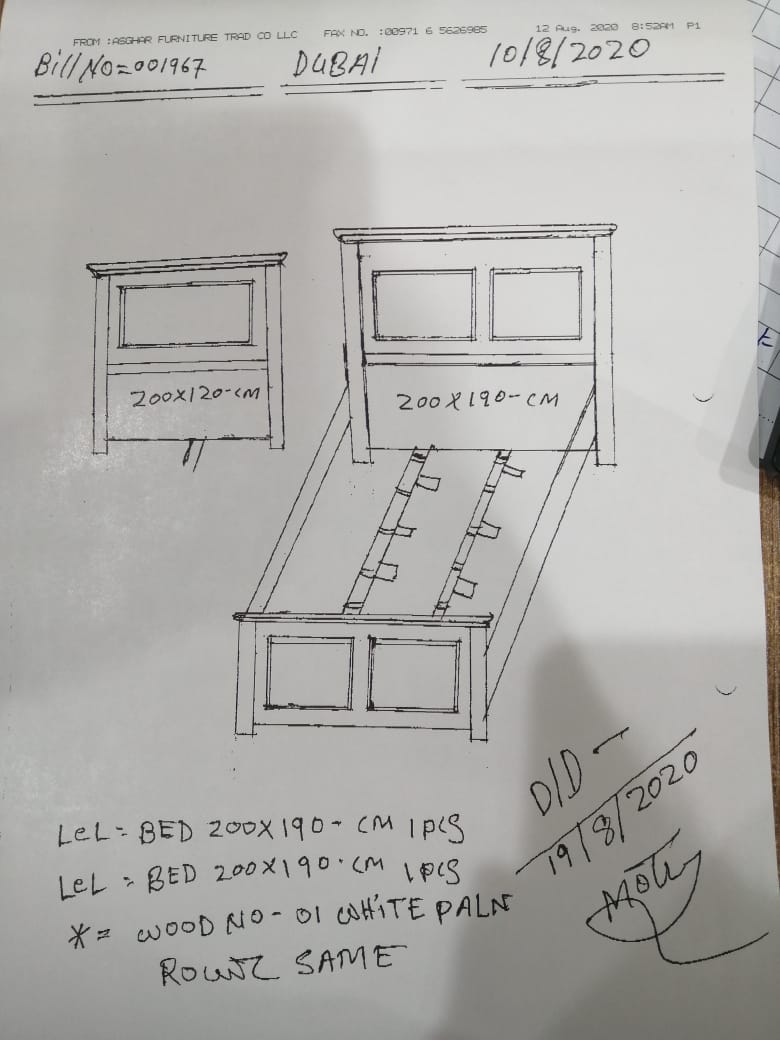 FROM :ASGHAR FURNITURE TRAD CO LLC FAX NO. :00971 6 5626985 12 Aug. 2020 8:52AM P1
Bill NO=001967 DUBAI 10/8/2020
200X120-CM
200X190-CM
D/D-
19/8/2020
LeL= BED 200X190- CM 1 PCS
LeL = BED 200X190-CM 1 PCS
*= WOOD NO- 01 WHITE PALN
SAME